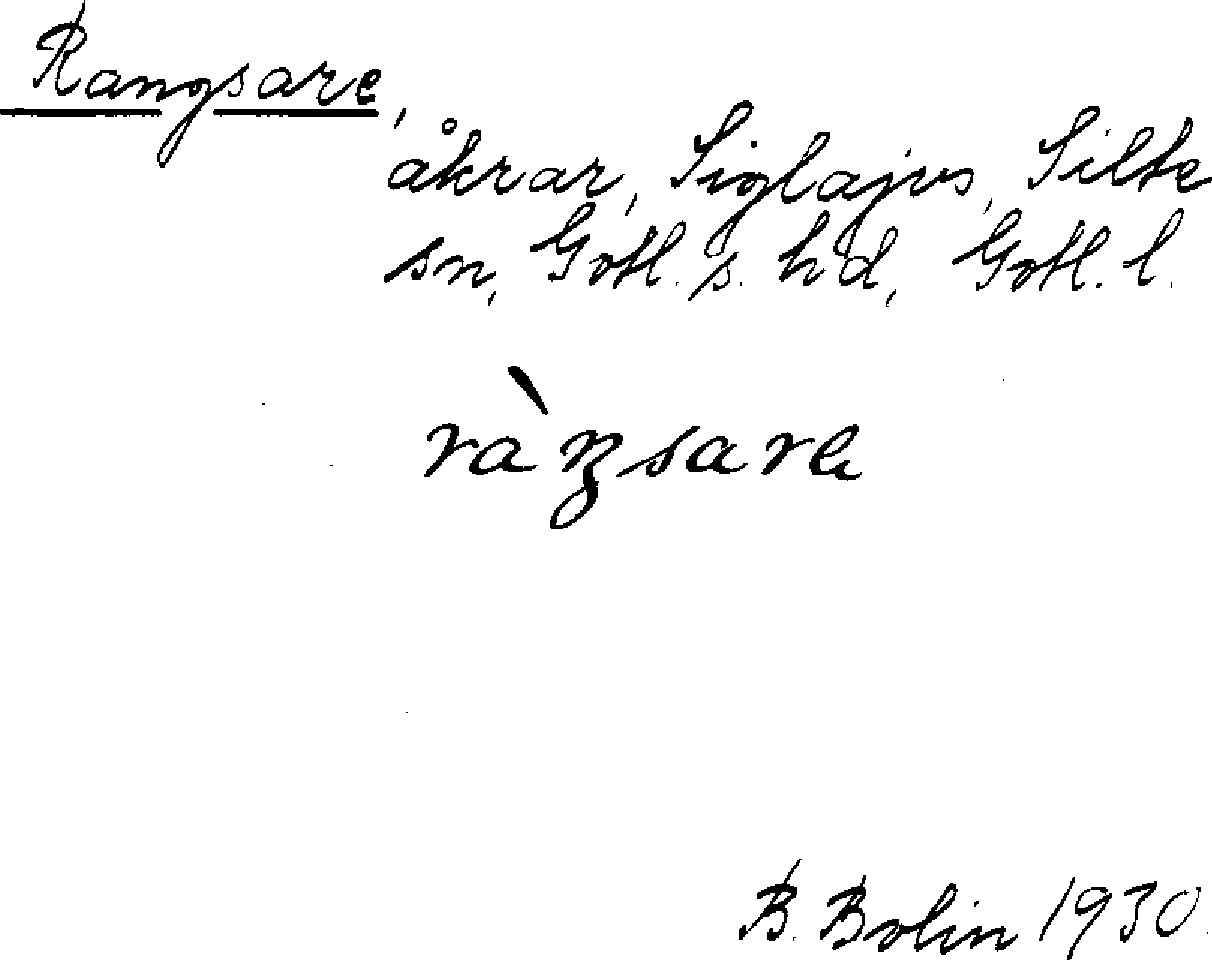 Rangsare,
åkrar, Siglajvs, Silte
sn, Gotl. s. hd, Gotl. l.
ràŋsare
B. Bolin 1930.